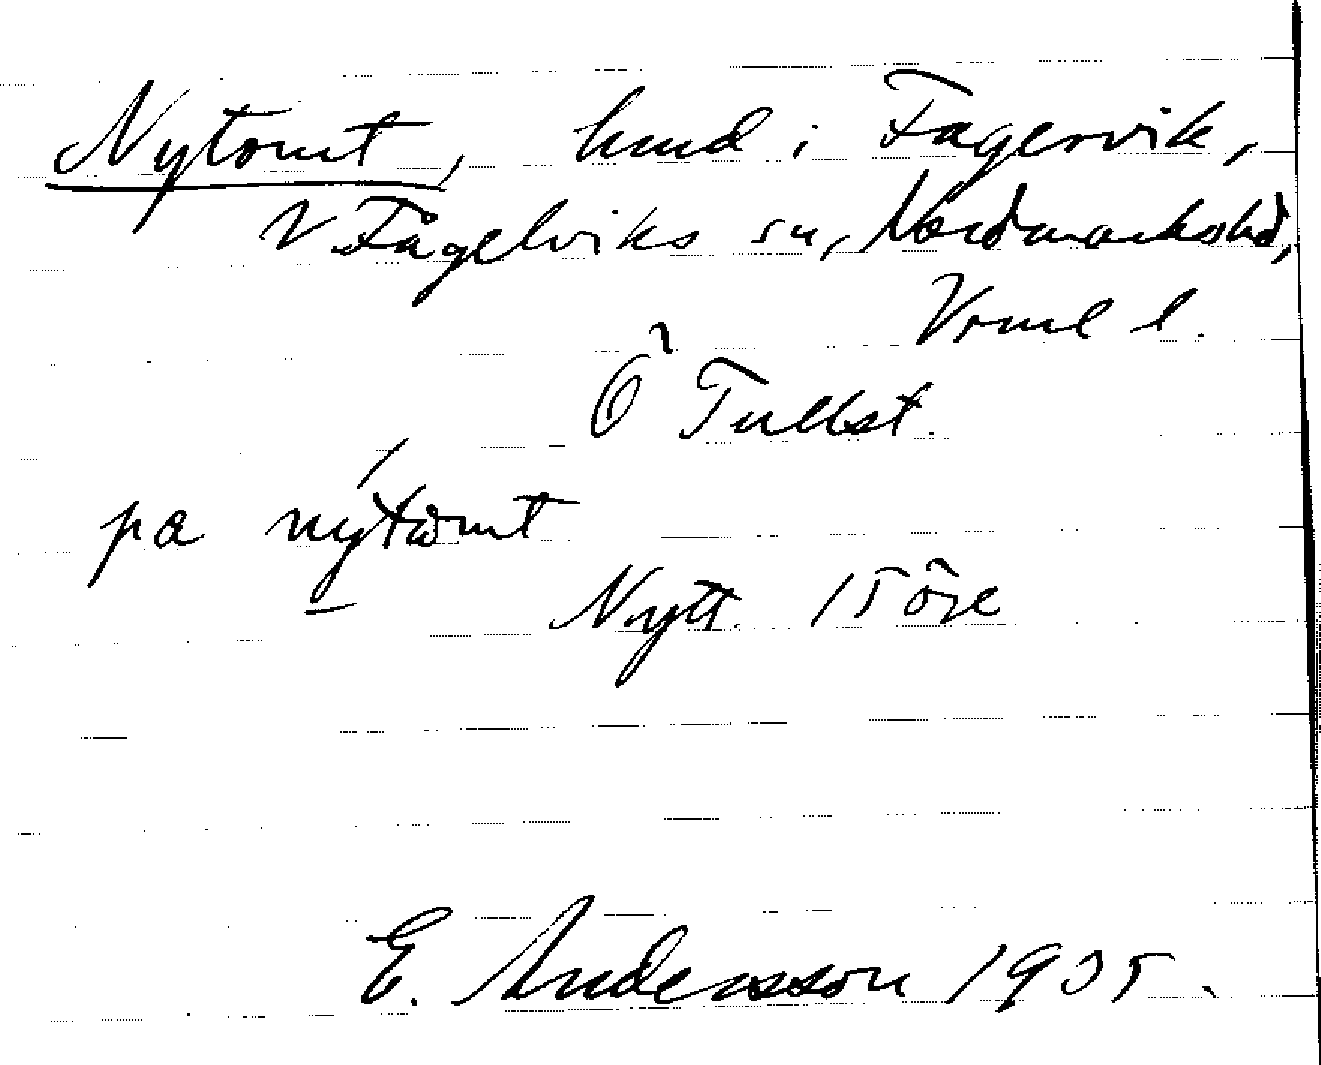 Nytomt, hmd i Fagervik,
V Fågelviks sn, Nordmarkshd,
Vrml l.
Ö Tullst.
pa nýtomt
Nytt. 15 öre
E. Andersson 1935.